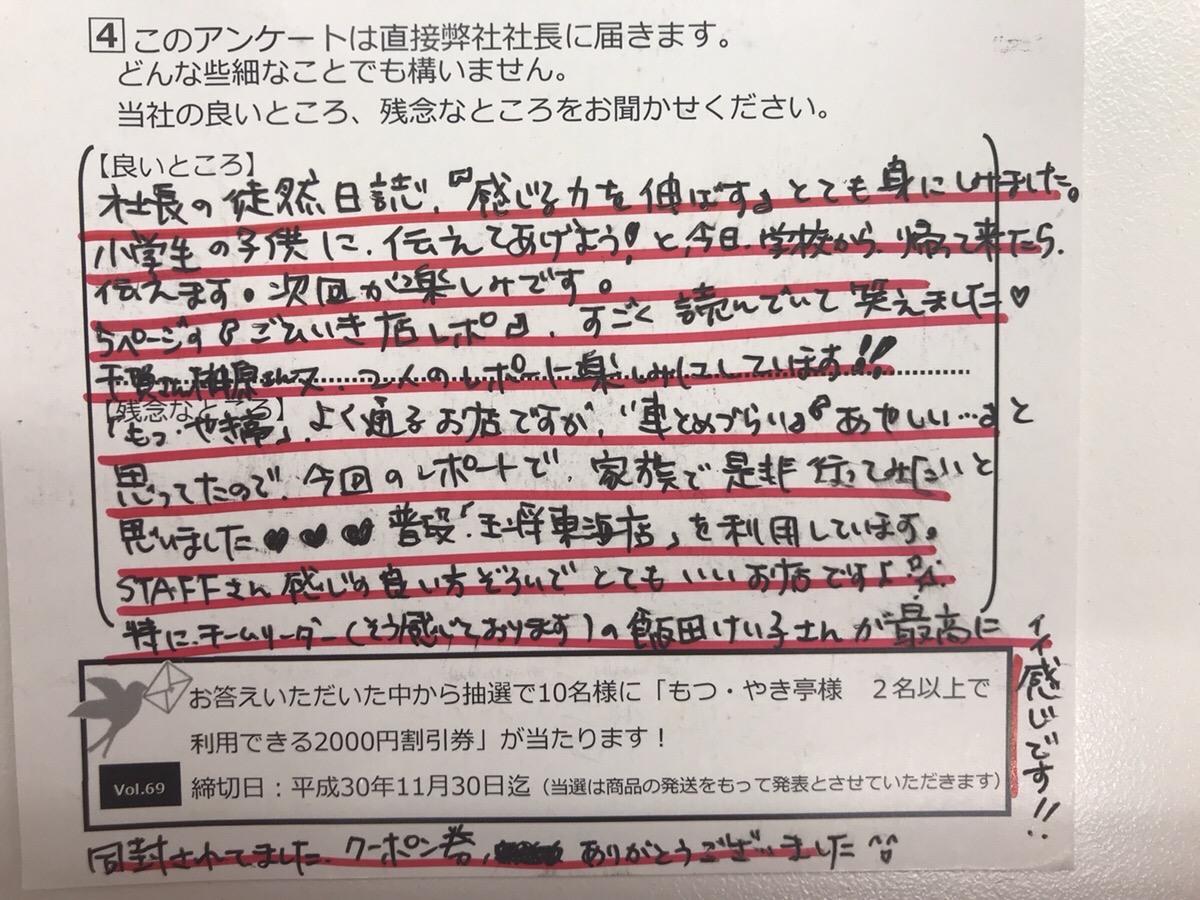 4 このアンケートは直接弊社社長に届きます。
どんな些細なことでも構いません。
当社の良いところ、残念なところをお聞かせください。
【良いところ】
社長の徒然日誌、『感じる力を伸ばす』とても身にしみました。
小学生の子供に、伝えてあげよう!と、今日、学校から、帰って来たら、
伝えます。次回が楽しみです。
5ページ『ごひいき店レポ』、すごく読んでいて笑えました♡
千賀さん榊原さん 2人のレポートに楽しみにしています!!
【残念なところ】
「もつ・やき亭」、よく通るお店ですが、"車とめづらい』『あやしい…』と
思ってたので、今回のレポートで、家族で是非行ってみたいと
思いました♥♥♥普段「王将東海店」を利用しています。
STAFFさん感じの良い方ぞろいでとてもいいお店ですよ
特に、チームリーダー(そう感じております)の飯田けい子さんが最高に
イイ感じです!!
お答えいただいた中から抽選で10名様に「もつ・やき亭様 2名以上で
利用できる2000円割引券」が当たります!
Vol.69 締切日:平成30年11月30日迄(当選は商品の発送をもって発表とさせていただきます)
同封されてました、クーポン券、ありがとうございました